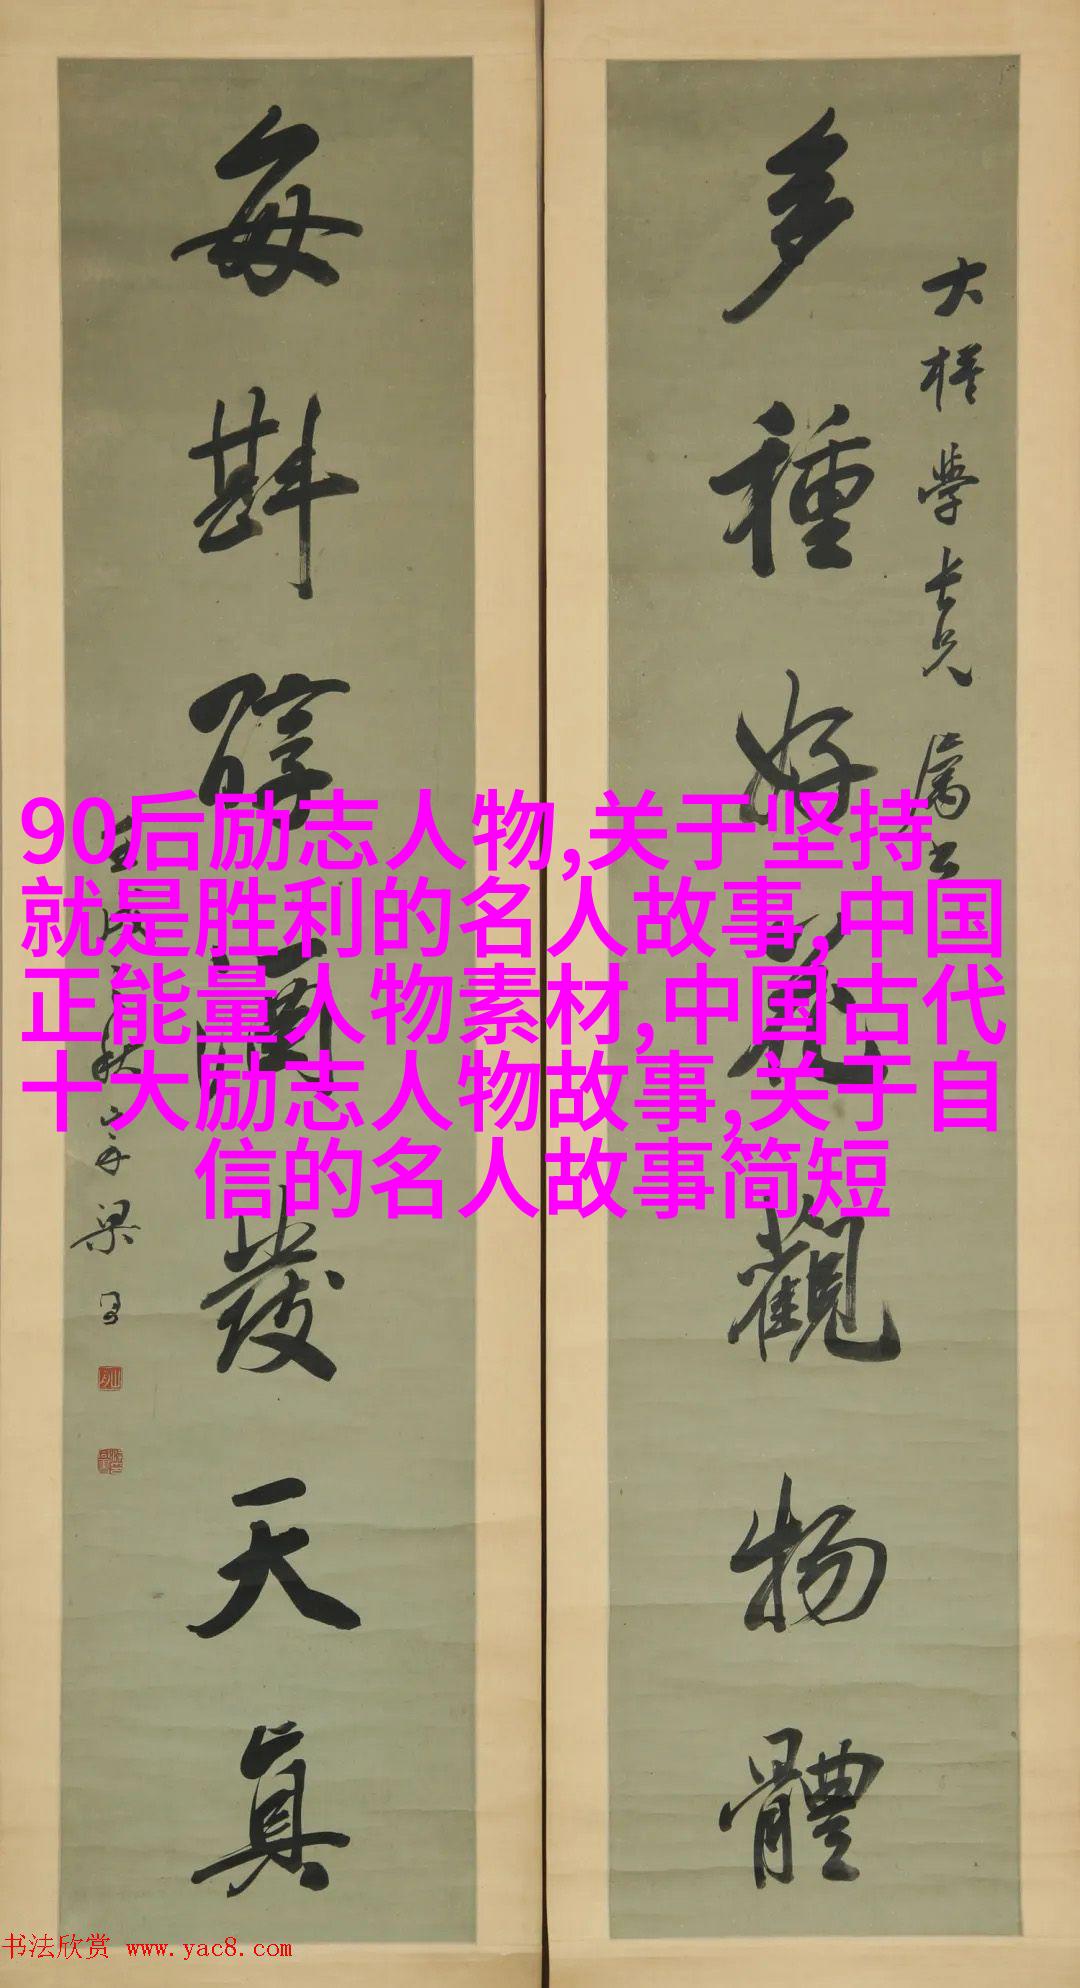 多種好花觀物體
大楷學长兄屬書
每斟醇酒發天真
梁同
90后励志人物,关于坚持
就是胜利的名人故事,中国
正能量人物素材,中国古代
十大励志人物故事,关于自
信的名人故事简短
书法欣赏 www.yac8.com